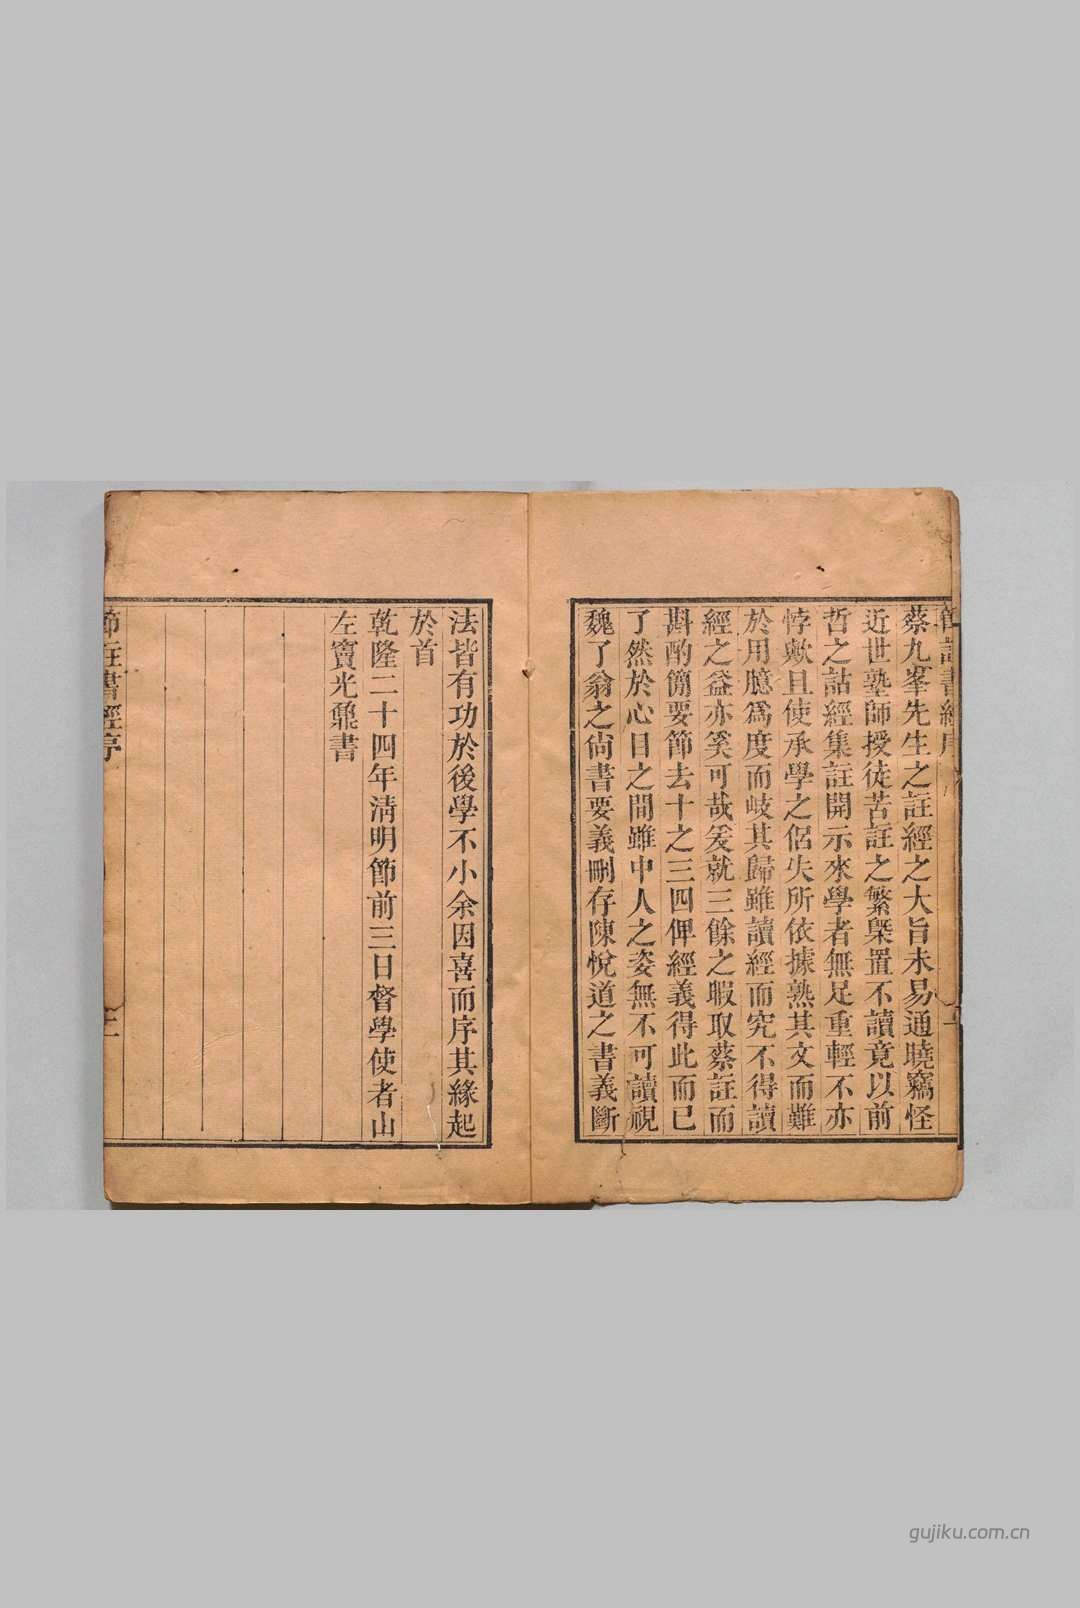 蔡九峯先生之註經之大旨未易通曉竊怪
近世塾師授徒苦註之繁槩置不讀竟以前
哲之詁經集註開示來學者無足重輕不亦
悖歟且使承學之侶失所依據熟其文而難
於用臆爲度而岐其歸雖讀經而究不得讀
經之益亦奚可哉爰就三餘之暇取蔡註而
斟酌簡要節去十之三四俾經義得此而已
了然於心目之間雖中人之姿無不可讀視
魏了翁之尚書要義刪存陳悅道之書義斷
法皆有功於後學不小余因喜而序其緣起
於首
乾隆二十四年清明節前三日督學使者山
左竇光鼐書
節註書經序
二
gujiku.com.cn